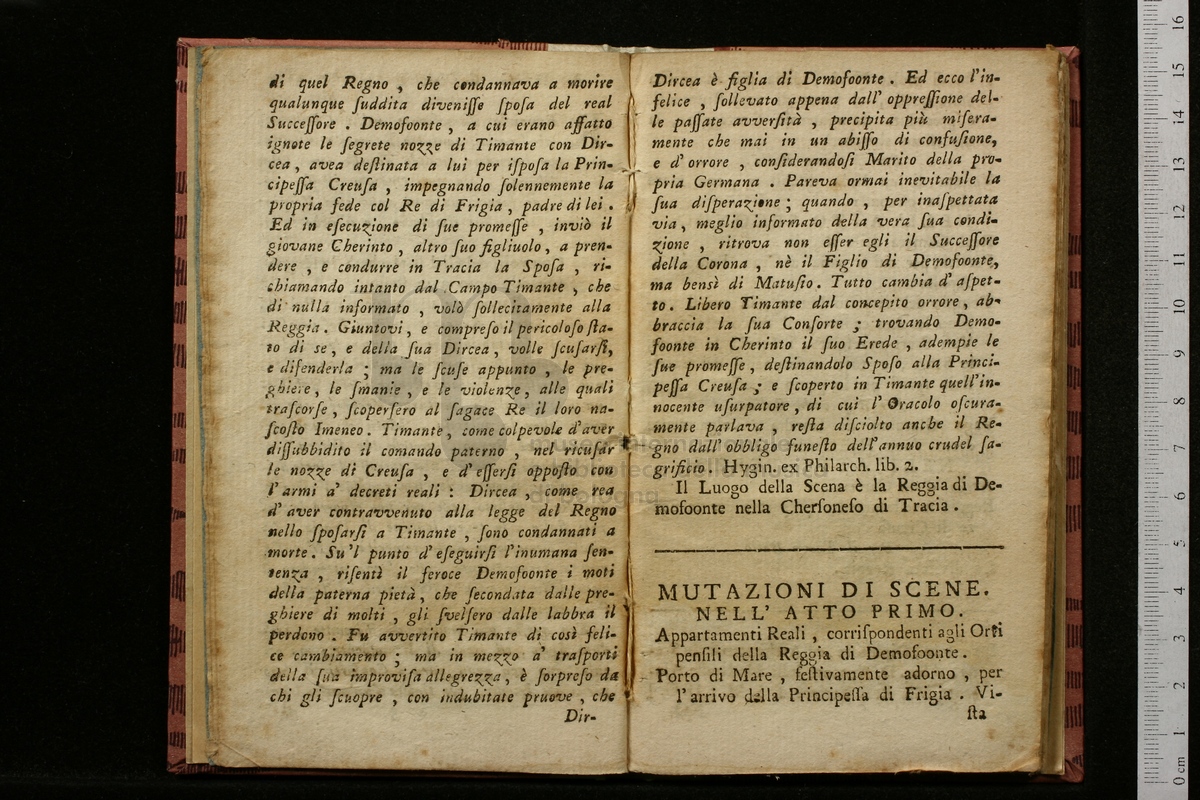 di quel Regno , che condannava a morire
qualunque ſuddita diveniſſe ſpoſa del real
Succeſſore . Demofoonte , a cui erano affatto
ignote le ſegrete nozze di Timante con Dir-
cea , avea deſtinata a lui per iſpoſa la Prin-
cipeſſa Creuſa , impegnando ſolennemente la
propria fede col Re di Frigia , padre di lei .
Ed in eſecuzione di ſue promeſſe , inviò il
giovane Cherinto , altro ſuo figliuolo , a pren-
dere , e condurre in Tracia la Spoſa , ri-
chiamando intanto dal Campo Timante , che
di nulla informato , volò ſollecitamente alla
Reggia . Giuntovi , e compreſo il pericoloſo ſta-
to di se , e della ſua Dircea , volle ſcuſarſi,
e difenderla ; ma le ſcuſe appunto , le pre-
ghiere , le ſmanie , e le violenze , alle quali
traſcorſe , ſcoperſero al ſagace Re il loro na-
ſcoſto Imeneo . Timante , come colpevole d'aver
diſſubbidito il comando paterno , nel ricuſar
le nozze di Creuſa , e d' eſſerſi oppoſto con
l' armi a' decreti reali : Dircea , come rea
d' aver contravvenuto alla legge del Regno
nello ſpoſarſi a Timante , ſono condannati a
morte . Su'l punto d' eſeguirſi l'inumana ſen-
tenza , riſentì il feroce Demofoonte i moti
della paterna pietà , che ſecondata dalle pre-
ghiere di molti , gli ſvelſero dalle labbra il
perdono . Fu avvertito Timante di così feli-
ce cambiamento ; ma in mezzo a' traſporti
della ſua improviſa allegrezza , è ſorpreſo da
chi gli ſcuopre , con indubitate pruove , che
Dir-
Dircea è figlia di Demofoonte . Ed ecco l'in-
felice , ſollevato appena dall' oppreſſione del-
le paſſate avverſità , precipita più miſera-
mente che mai in un abiſſo di confuſione,
e d' orrore , conſiderandoſi Marito della pro-
pria Germana . Pareva ormai inevitabile la
ſua diſperazione ; quando , per inaſpettata
via , meglio informato della vera ſua condi-
zione , ritrova non eſſer egli il Succeſſore
della Corona , nè il Figlio di Demofoonte,
ma bensì di Matuſio . Tutto cambia d' aſpet-
to . Libero Timante dal concepito orrore , ab-
braccia la ſua Conſorte ; trovando Demo-
foonte in Cherinto il ſuo Erede , adempie le
ſue promeſſe , deſtinandolo Spoſo alla Princi-
peſſa Creuſa ; e ſcoperto in Timante quell'in-
nocente uſurpatore , di cui l' Oracolo oſcura-
mente parlava , reſta diſciolto anche il Re-
gno dall' obbligo funeſto dell'annuo crudel ſa-
grificio . Hygin. ex Philarch. lib. 2.
Il Luogo della Scena è la Reggia di De-
mofoonte nella Cherſoneſo di Tracia .
MUTAZIONI DI SCENE.
NELL' ATTO PRIMO.
Appartamenti Reali , corriſpondenti agli Orti
penſili della Reggia di Demofoonte .
Porto di Mare , feſtivamente adorno , per
l' arrivo della Principeſſa di Frigia . Vi-
ſta